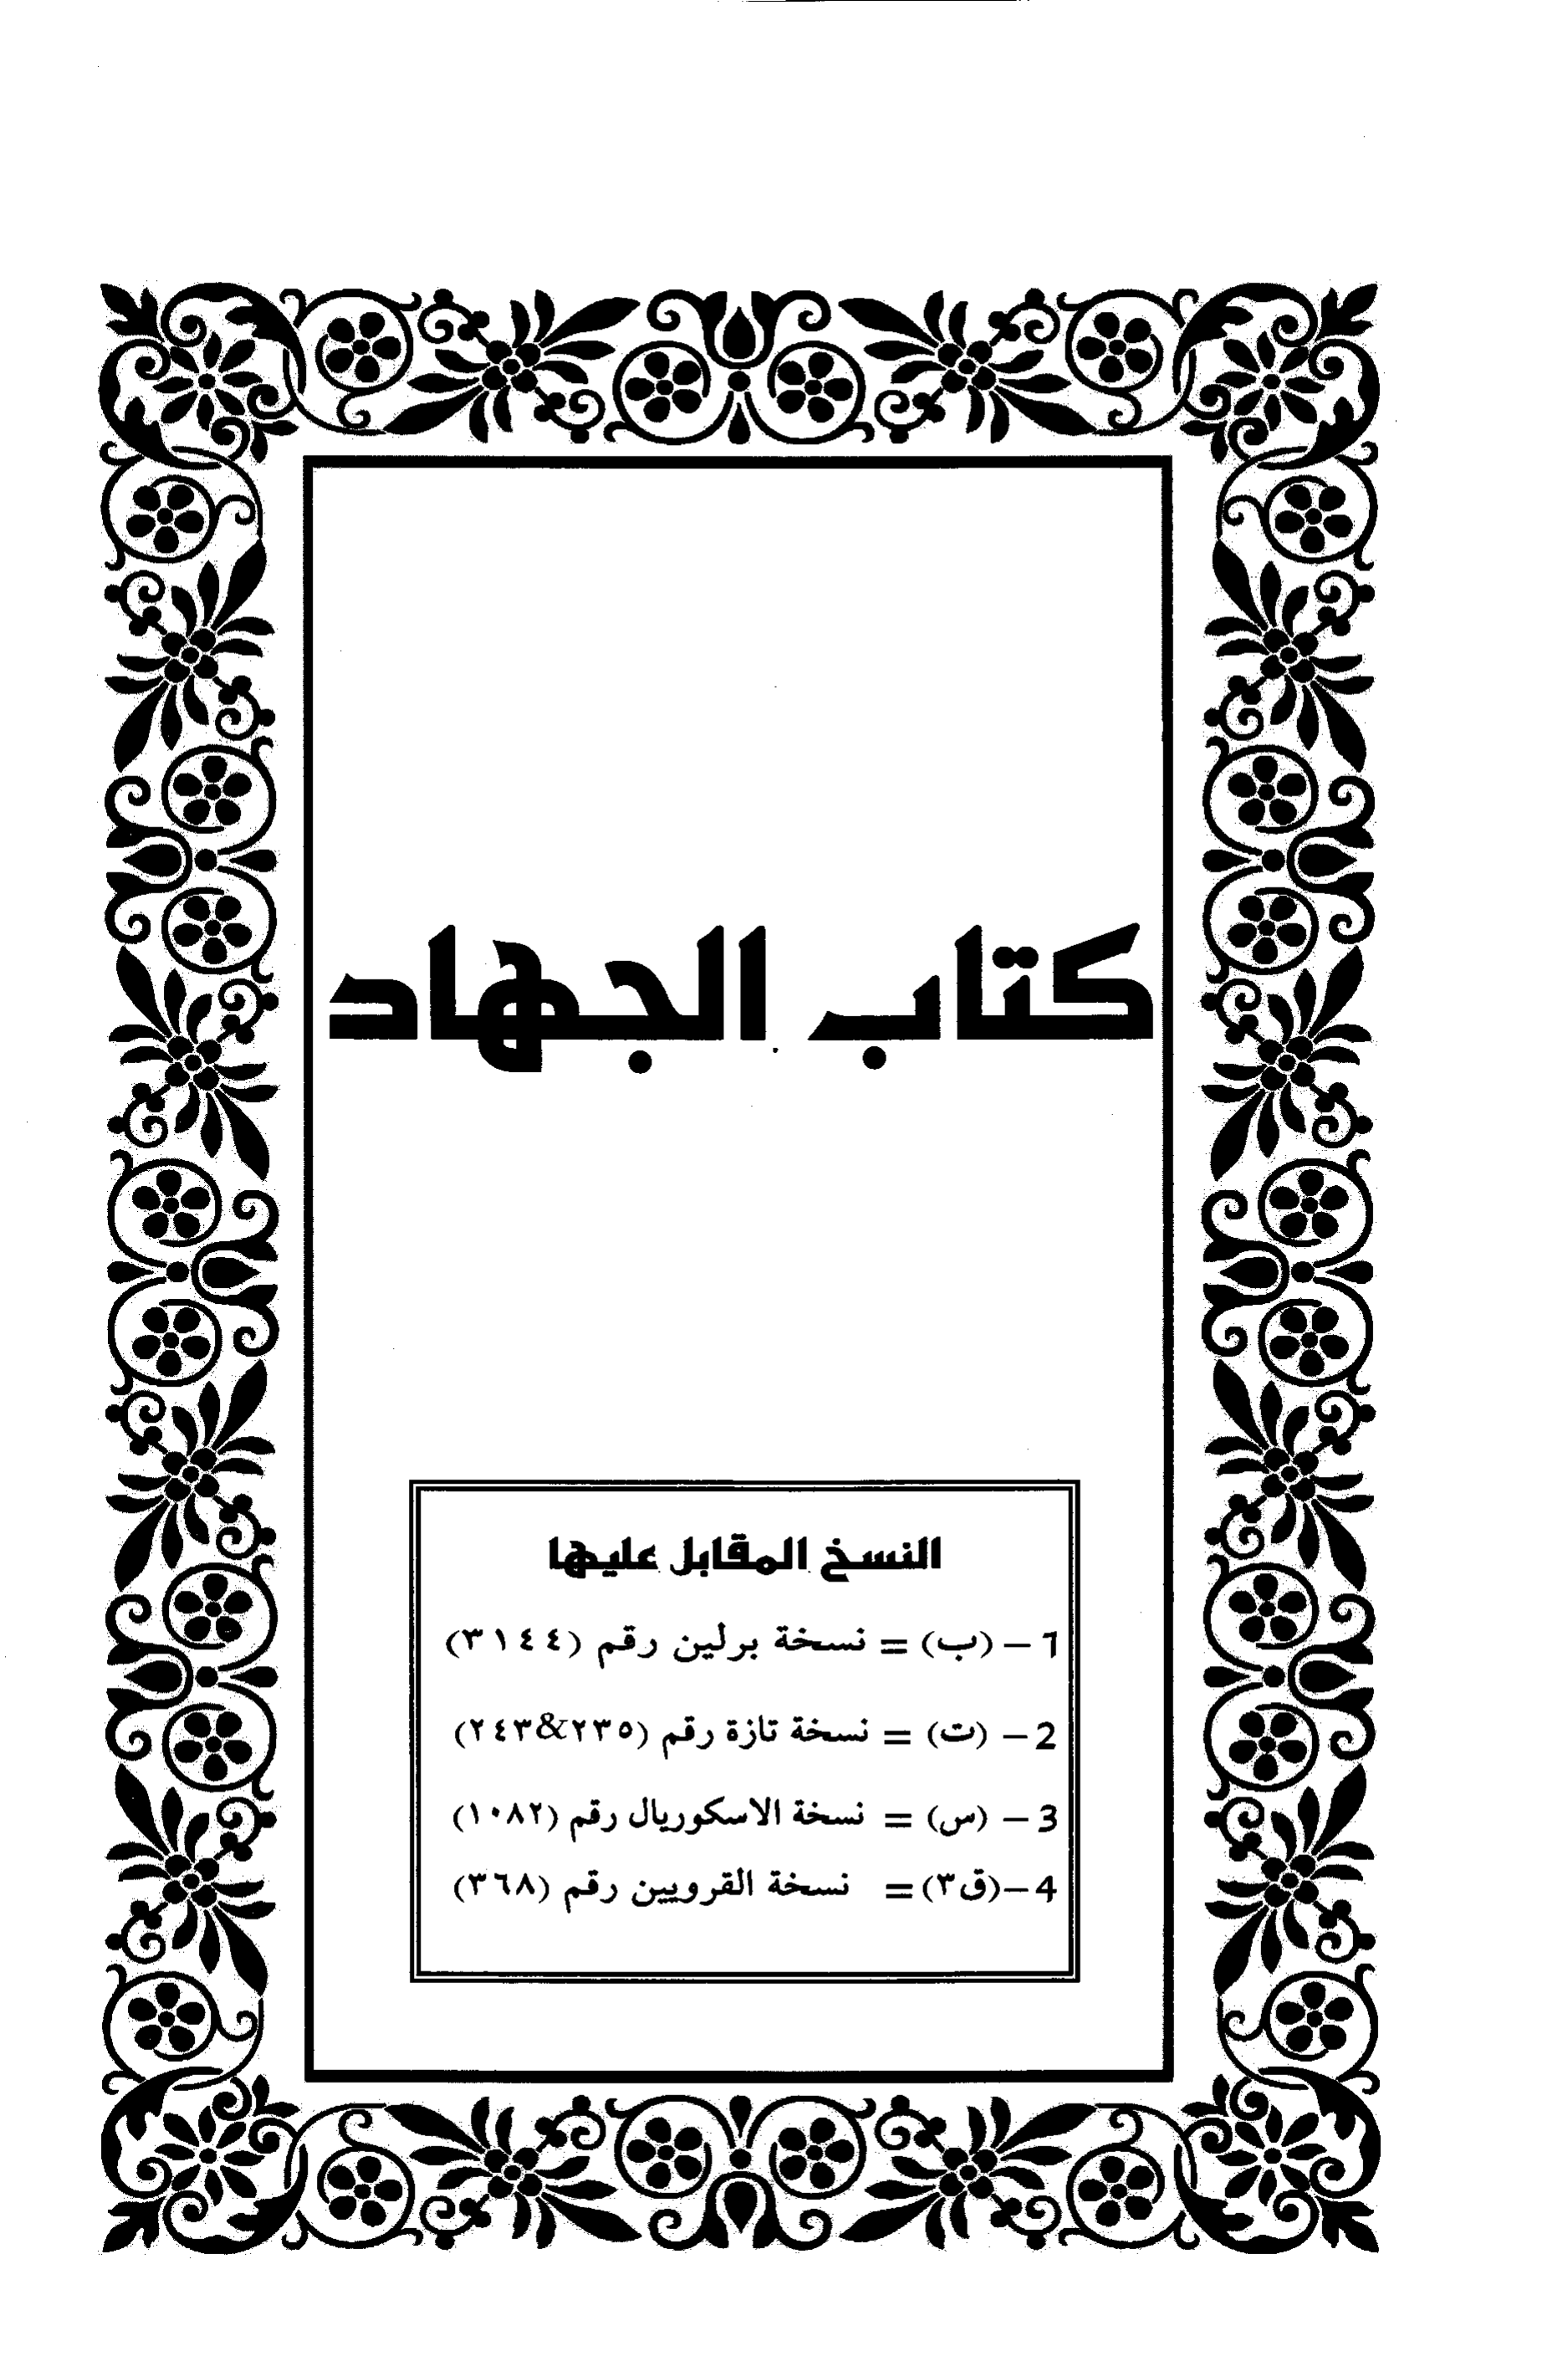 كتاب الجهاد
النسخ المقابل عليها
1 – (ب) = نسخة برلين رقم (٣١٤٤)
2 – (ت) = نسخة تازة رقم (٢٣٥&٢٤٣)
3 – (س) = نسخة الاسكوريال رقم (١٠٨٢)
4 –(ق٣)= نسخة القرويين رقم (٣٦٨)